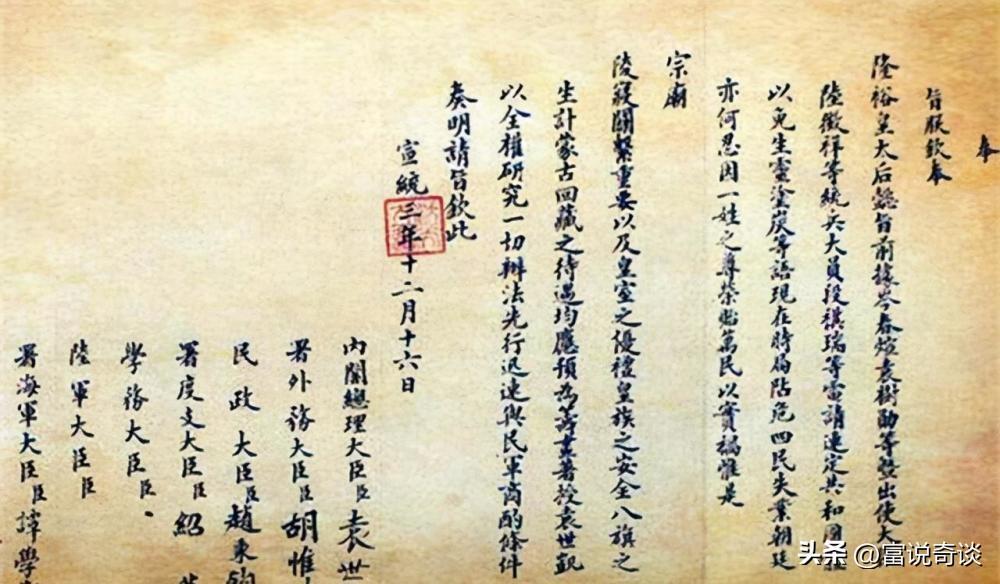 奉
旨朕欽奉
隆裕皇太后懿旨前據岑春煊袁樹勛等暨出使大
陸徵祥等統兵大員段祺瑞等電請速定共和國
以免生靈塗炭等語現在時局阽危四民失業朝廷
亦何忍因一姓之尊榮貽萬民以實禍惟是
宗廟
陵寢關繫重要以及皇室之優禮皇族之安全八旗之
生計蒙古回藏之待遇均應預為籌畫著授袁世凱
以全權研究一切辦法先行迅速與民軍商酌條件
奏明請旨欽此
宣統三年十二月十六日
內閣總理大臣臣袁世
署外務大臣臣胡惟
民政大臣臣趙秉鈞
署度支大臣臣紹
學務大臣臣
陸軍大臣臣
署海軍大臣臣譚學
头条 @富说奇谈